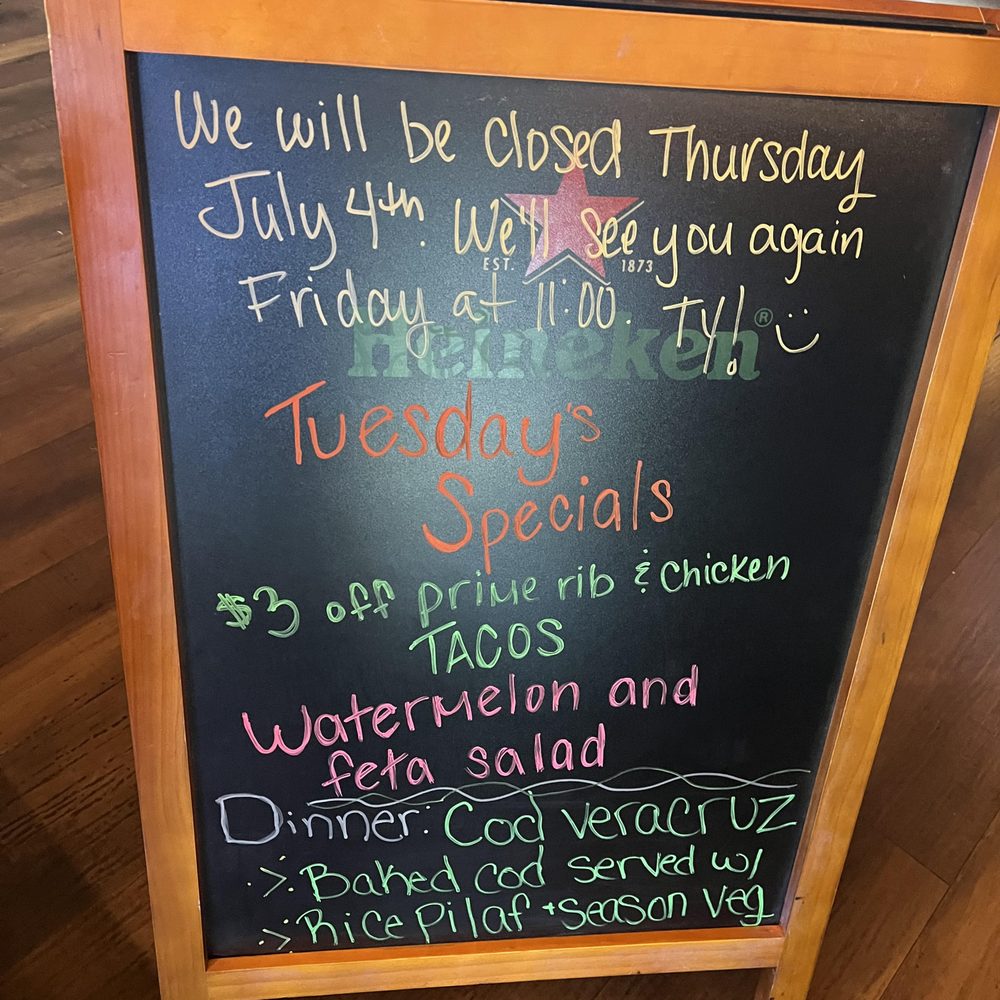 We will be closed Thursday
July 4th. We'll see you again
EST. 1873
Friday at 11:00. TY!
Heineken®
Tuesday's
Specials
$3 off prime rib & chicken
TACOS
Watermelon and
feta salad
Dinner: Cod veracruz
Baked cod served w/
Rice Pilaf + season veg